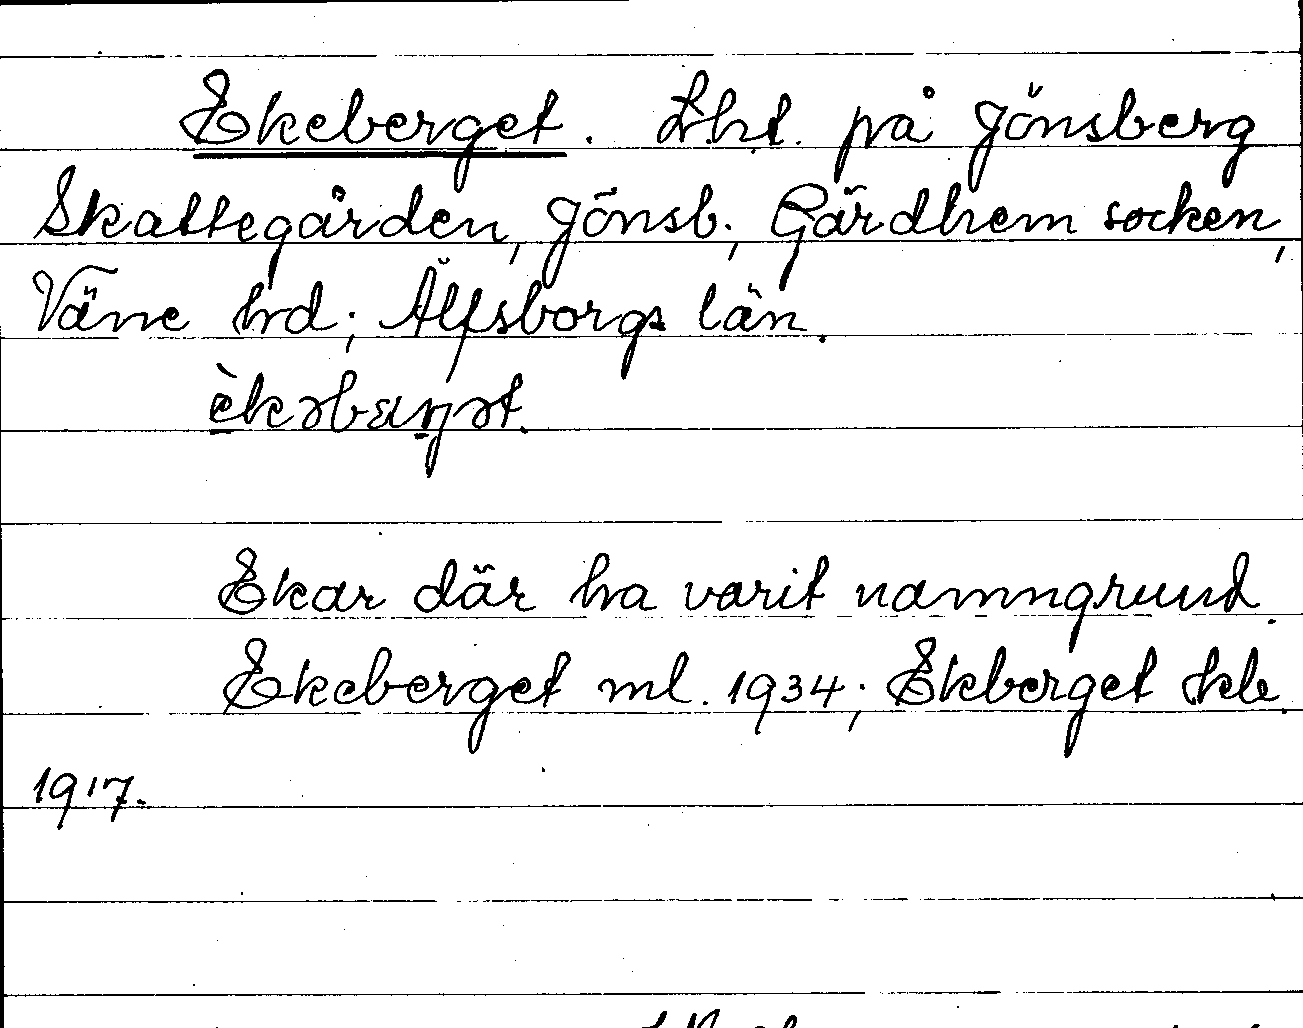 Ekeberget. Lht. på Jönsberg
Skattegården, Jönsb., Gärdhem socken,
Väne hrd; Älfsborgs län.
Ekar där ha varit namngrund.
Ekeberget ml. 1934; Ekberget skb.
1917.